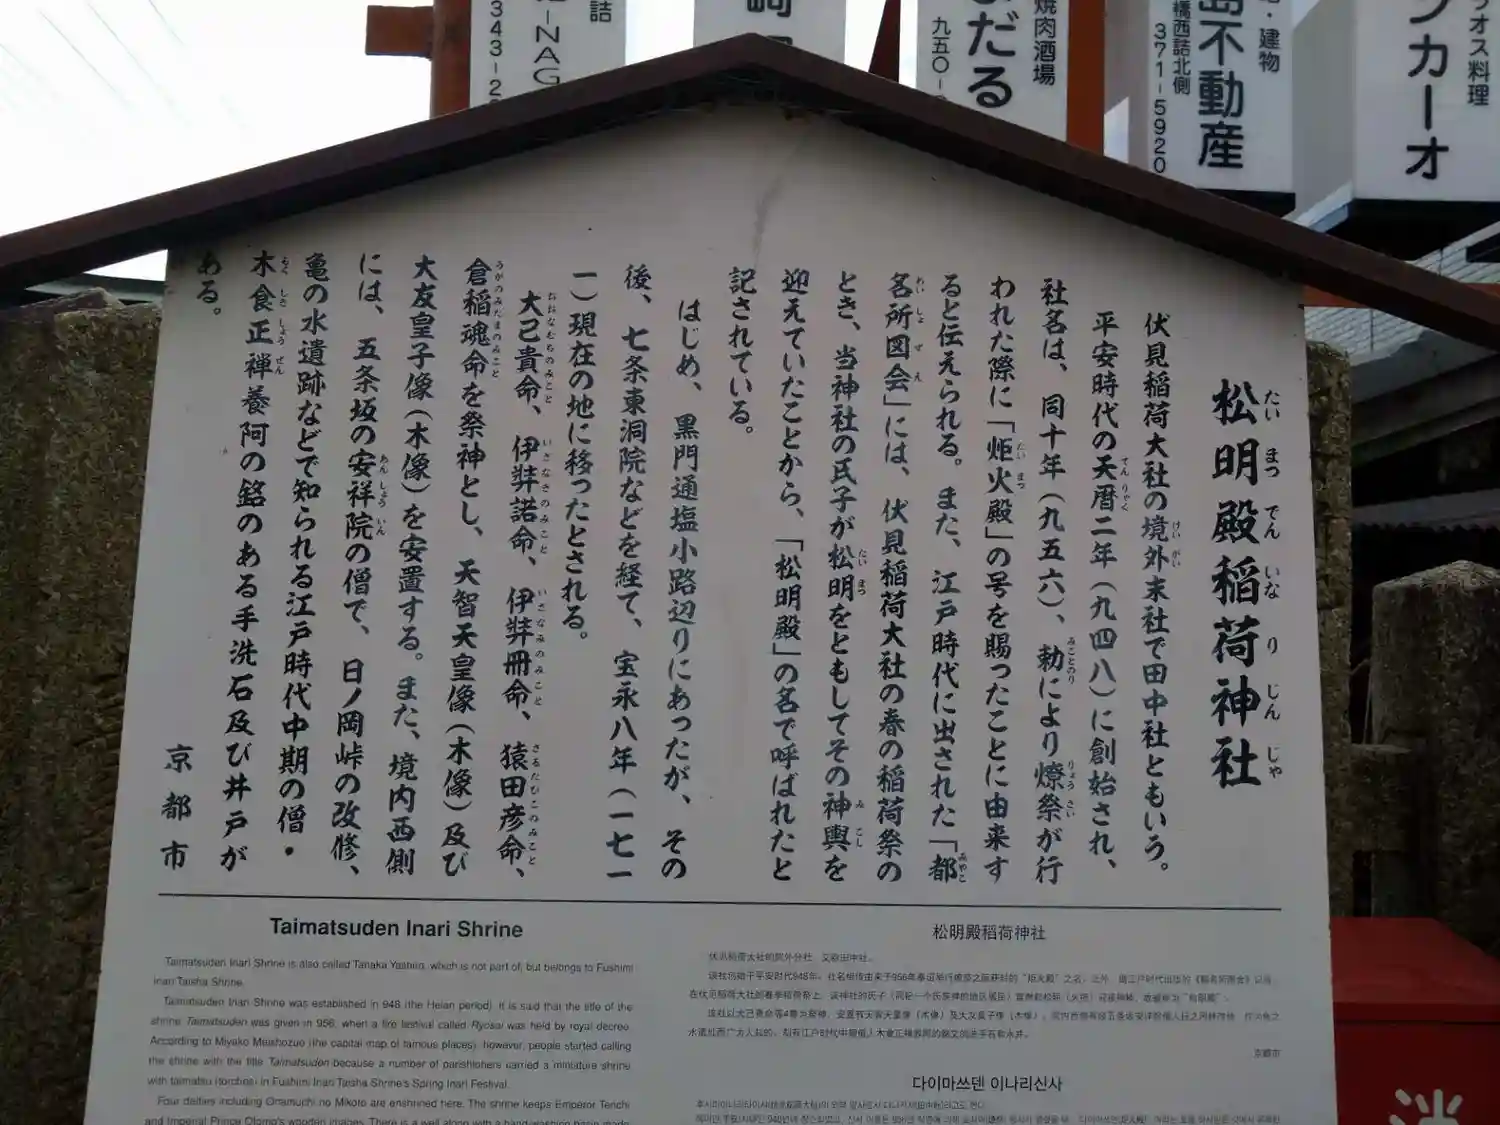 松明殿稲荷神社
たいまつでんいなりじんじゃ
伏見稲荷大社の境外末社で田中社ともいう。
平安時代の天暦二年（九四八）に創始され、
社名は、同十年（九五六）、勅により燎祭が行
われた際に「炬火殿」の号を賜ったことに由来す
ると伝えられる。また、江戸時代に出された「都
名所図会」には、伏見稲荷大社の春の稲荷祭の
とき、当神社の氏子が松明をともしてその神輿を
迎えていたことから、「松明殿」の名で呼ばれたと
記されている。
はじめ、黒門通塩小路辺りにあったが、その
後、七条東洞院などを経て、宝永八年（一七一
一）現在の地に移ったとされる。
大己貴命、伊弉諾命、伊弉冊命、猿田彦命、
倉稲魂命を祭神とし、天智天皇像（木像）及び
大友皇子像（木像）を安置する。また、境内西側
には、五条坂の安祥院の僧で、日ノ岡峠の改修、
亀の水遺跡などで知られる江戸時代中期の僧・
木食正禅養阿の銘のある手洗石及び井戸が
ある。
京都市
Taimatsuden Inari Shrine
Taimatsuden Inari Shrine is also called Tanaka Yashiro, which is not part of, but belongs to Fushimi
Inari Taisha Shrine.
Taimatsuden Inari Shrine was established in 948 (the Heian period). It is said that the title of the
shrine Taimatsuden was given in 956, when a fire festival called Ryosai was held by royal decree.
According to Miyako Meishozue (the capital map of famous places), however, people started calling
the shrine with the title Taimatsuden because a number of parishioners carried a miniature shrine
with taimatsu (torches) in Fushimi Inari Taisha Shrine's Spring Inari Festival.
Four deities including Onamuchi no Mikoto are enshrined here. The shrine keeps Emperor Tenchi
and Imperial Prince Otomo's wooden images. There is a well along with a hand-washing basin made
松明殿稲荷神社
京都市
다이마쓰덴 이나리신사
詰
343-2
-NAG
焼肉酒場
だる
九五〇-
・建物
橋西詰北側
島不動産
371-5920
オス料理
カーオ
消